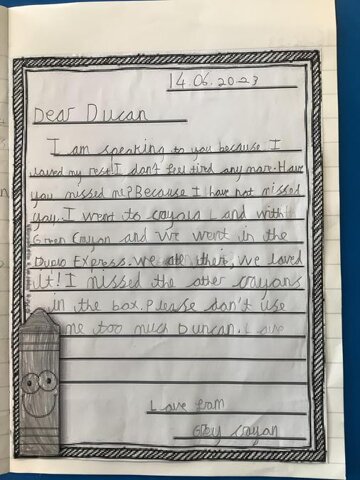 14.06.2023
Dear Ducan
I am speaking to you because I
loved my rest.I don't feel tired any more.Have
you missed me?Because I have not missed
you.I went to crayola Land with
Green Crayon and we went in the
Duplo EXpress. We ate there, We loved
It! I missed the other crayons
in the box.Please don't use
me too much Duncan.
Love from
Grey Crayon